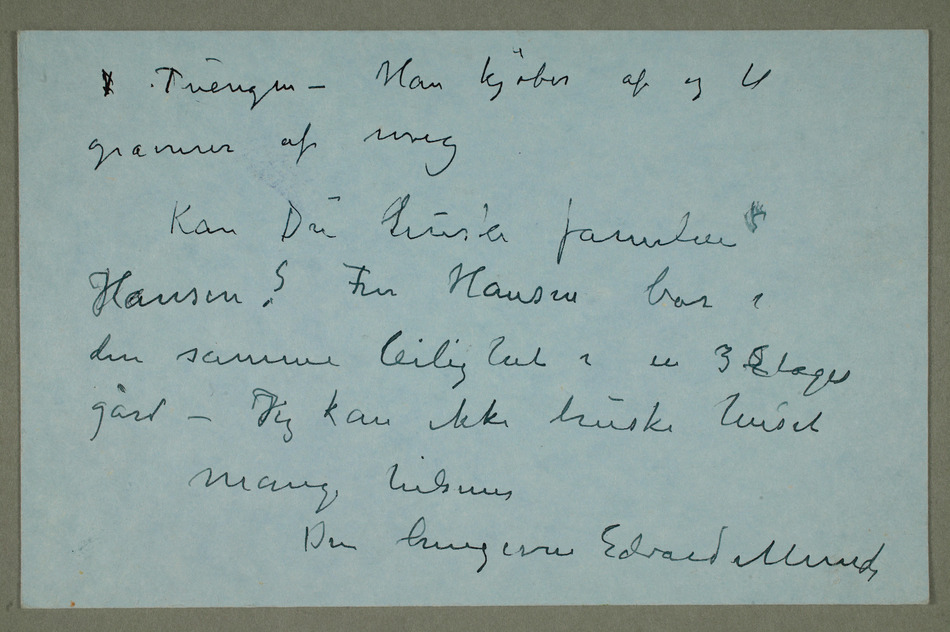 Tvengen – Han kjöber af og til
graverer af mig
Kan Du huske familien
Hansen? Fru Hansen bor i
den samme leilighet i en 3 Etages
gård – Jeg kan ikke huske huset
Mange hilsener
Din hengivne Edvard Munch